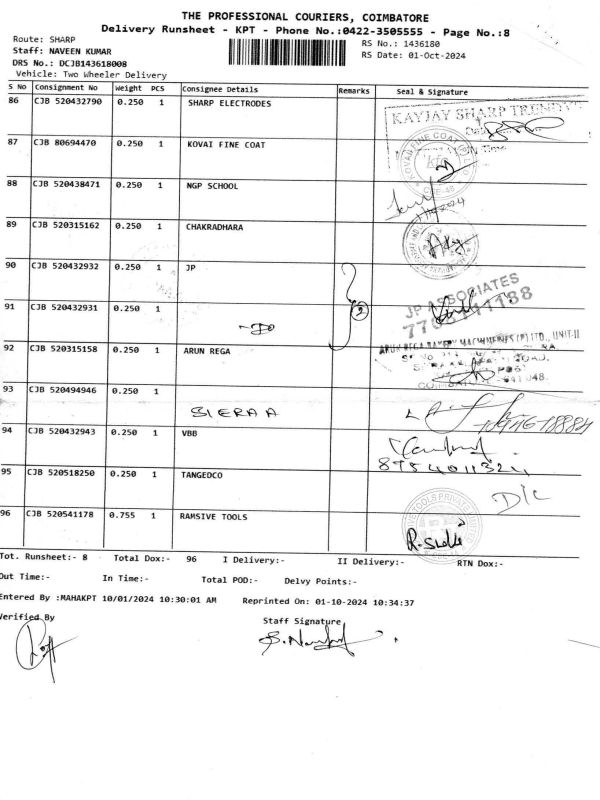 THE PROFESSIONAL COURIERS, COIMBATORE
Delivery Runsheet - KPT - Phone No.:0422-3505555 - Page No.:8
Route: SHARP
RS No.: 1436180
Staff: NAVEEN KUMAR
RS Date: 01-Oct-2024
DRS No.: DCJB143618008
Vehicle: Two Wheeler Delivery
S No Consignment No Weight PCS Consignee Details Remarks Seal & Signature
86 CJB 520432790 0.250 1 SHARP ELECTRODES
KAYJAY SHARP TRENDY
87 CJB 80694470 0.250 1 KOVAI FINE COAT
88 CJB 520438471 0.250 1 NGP SCHOOL
89 CJB 520315162 0.250 1 CHAKRADHARA
90 CJB 520432932 0.250 1 JP
JP ASSOCIATES
91 CJB 520432931 0.250 1
2
92 CJB 520315158 0.250 1 ARUN REGA
93 CJB 520494946 0.250 1
SIERAA
94 CJB 520432943 0.250 1 VBB
95 CJB 520518250 0.250 1 TANGEDCO
D/C
96 CJB 520541178 0.755 1 RAMSIVE TOOLS
Tot. Runsheet:- 8 Total Dox:- 96 I Delivery:- II Delivery:- RTN Dox:-
Out Time:- In Time:- Total POD:- Delvy Points:-
Entered By :MAHAKPT 10/01/2024 10:30:01 AM Reprinted On: 01-10-2024 10:34:37
Verified By Staff Signature